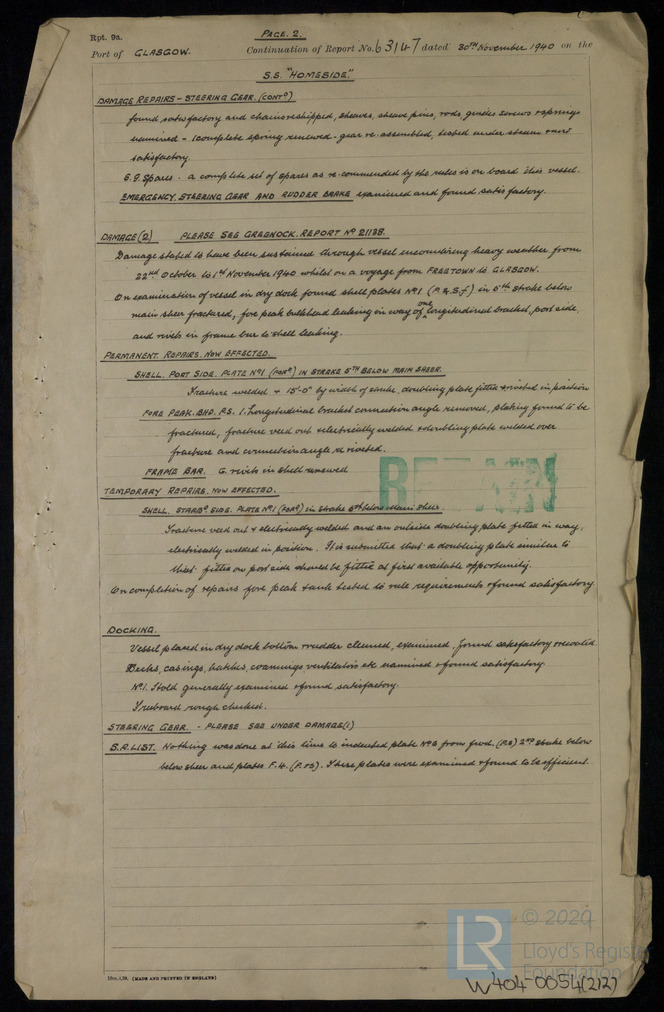 Rpt. 9a.
PAGE. 2.
Port of GLASGOW. Continuation of Report No. 63147 dated 30TH November 1940 on the
S.S. "HOMESIDE."
DAMAGE REPAIRS - STEERING GEAR. (CONTD)
found satisfactory and chains reshipped, sheaves, sheave pins, rods, guides screws & springs
examined - 1 complete spring renewed - gear re-assembled, tested under steam & found
satisfactory.
S.G. Spares. - a complete set of spares as re-commended by the rules is on board this vessel.
EMERGENCY. STEERING GEAR AND RUDDER BRAKE examined and found satisfactory.
DAMAGE (2) PLEASE SEE GREENOCK. REPORT No 21138.
Damage stated to have been sustained through vessel encountering heavy weather from
22nd October to 1st November 1940 whilst on a voyage from FREETOWN to GLASGOW.
On examination of vessel in dry dock found shell plates No1 (P.&S.f) in 5th strake below
main sheer fractured, fore peak bulkhead leaking in way of one longitudinal bracket, port side,
and rivets in frame bar to shell leaking.
PERMANENT. REPAIRS. NOW EFFECTED.
SHELL. PORT SIDE. PLATE No1 (FORD) IN STRAKE 5TH BELOW MAIN SHEER.
Fracture welded & 15'-0" by width of strake, doubling plate fitted & riveted in position
FORE PEAK. BHD. P.S. 1. Longitudinal bracket connection angle removed, plating found to be
fractured, fracture veed out & electrically welded & doubling plate welded over
fracture and connection angle re riveted.
FRAME BAR. 6. rivets in shell renewed
RETAIN
TEMPORARY REPAIRS. NOW EFFECTED.
SHELL. STARBD. SIDE. PLATE No1 (FORD) in strake 5th below Main Sheer.
Fracture veed out & electrically welded and an outside doubling plate fitted in way,
electrically welded in position. It is submitted that a doubling plate similar to
that fitted on port side should be fitted at first available opportunity.
On completion of repairs fore peak tank tested to rule requirements & found satisfactory
DOCKING.
Vessel placed in dry dock bottom & rudder cleaned, examined. found satisfactory & recoated
Decks, casings, hatches, coamings ventilators etc examined & found satisfactory
No1. Hold generally examined & found satisfactory.
Freeboard rough checked.
STEERING GEAR. - PLEASE SEE UNDER DAMAGE (1)
S.R. LIST. Nothing was done at this time to indented plate No3 from fwd. (P.S) 2nd strake below
below sheer and plates F.4. (P.&S). These plates were examined & found to be efficient.
(MADE AND PRINTED IN ENGLAND)
LR
© 2020
Lloyd's Register
Foundation
W404-0054(2/2)